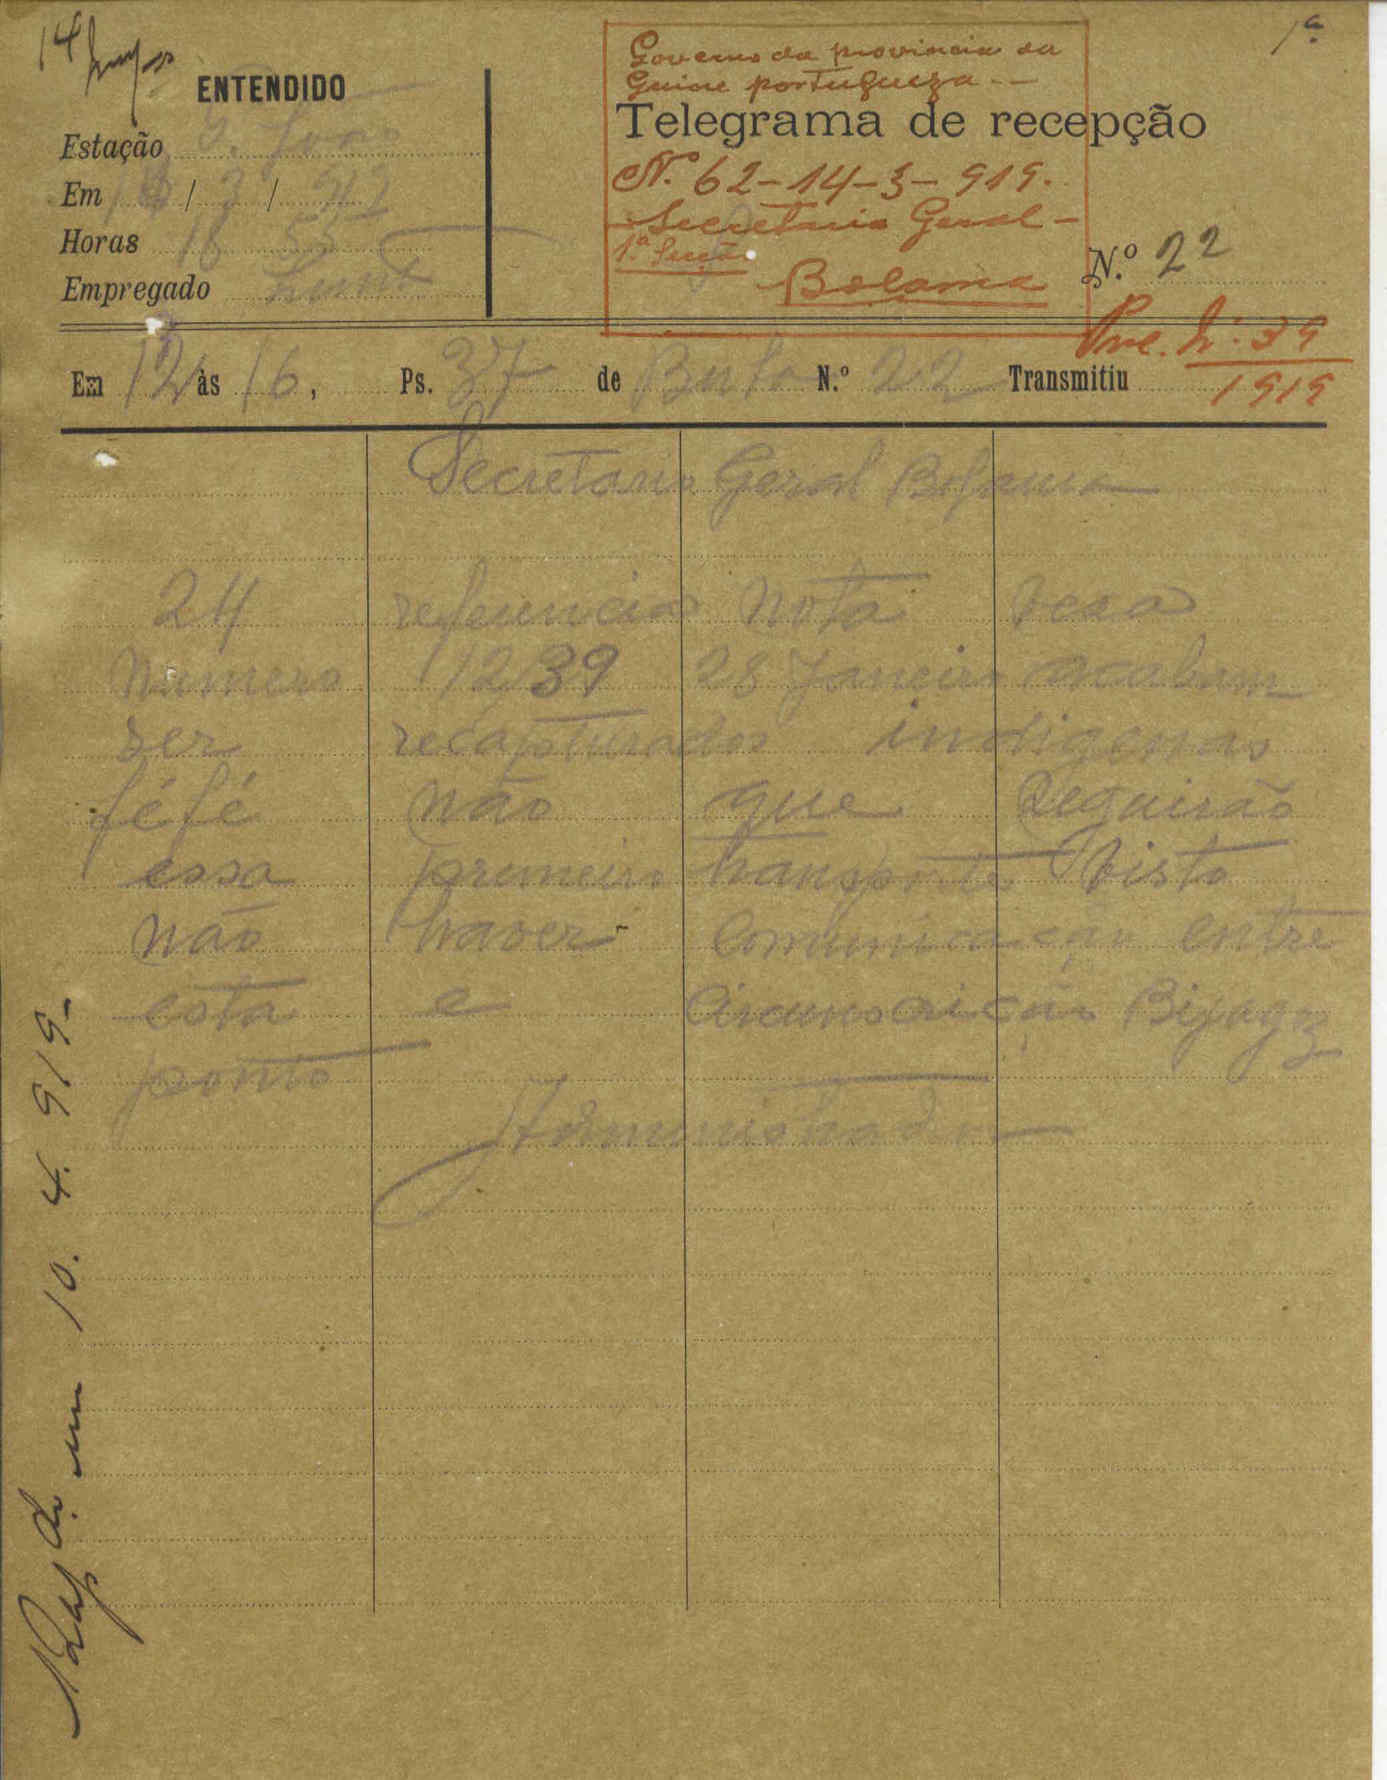 14
1ª
ENTENDIDO
Estação S. João
Em 13 / 3 / 919
Horas 16 55
Empregado
Governo da provincia da
Guine portugueza --
Telegrama de recepção
Nº 62-14-3-919.
Secretaria Geral -
1ª Secção
Bolama
N.º 22
Proc. Nº 39
1919
Em 12 às 16, Ps. 37 de Buba N.º 22 Transmitiu
Secretario Geral Bolama
24 referencia nota vexa
numero 1239 28 Janeiro acabam
ser recapturados indigenas
féfé não que seguirão
essa primeiro transporte visto
não haver comunicação entre
esta e circunscrição Bijagoz
ponto
Administrador
Resp. di em 10. 4. 919-